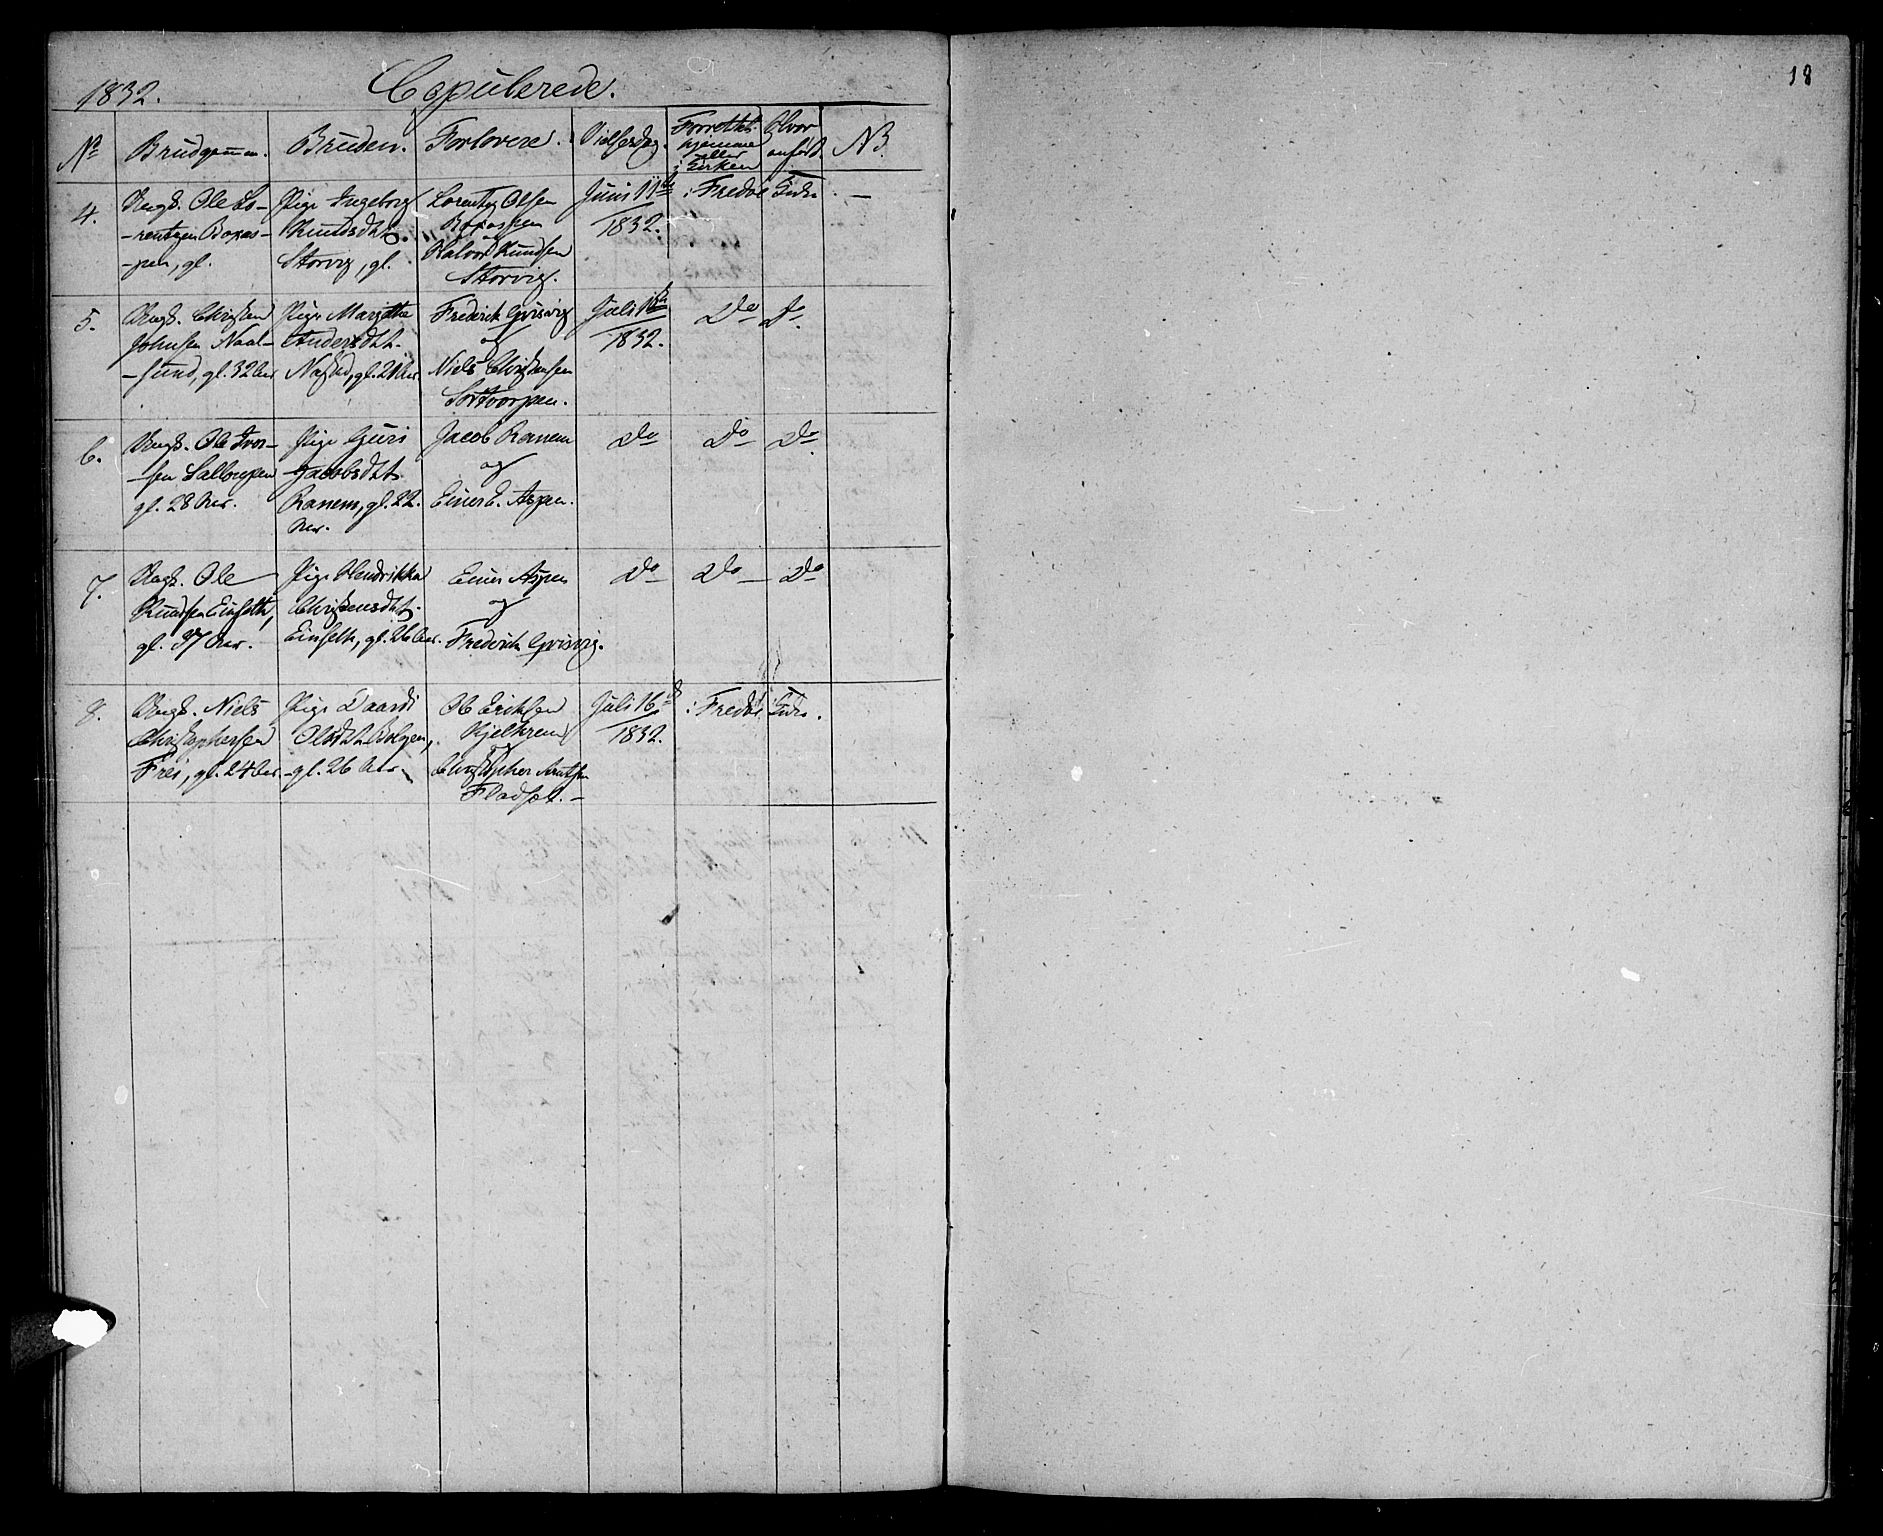 18
1832. Copulerede.
No Brudgom. Bruden. Forlovere. Vielsesdag. Forrettet hjemme eller i Kirken Hvor anført. NB.
4. Ungk. Ole Lo-
-rentzen Boxas-
-pen, gl.
Pige Ingeborg
Knudsdtt.
Storvig, gl.
Lorentz Olsen
Boxaspen
Halvor Knudsen
Storvig.
Juni 11te
1832.
i Fredøe Kirke
—
5. Ungk. Christen
Johnsen Naal-
-sund, gl. 32 Aar
Pige Marithe
Andersdtt.
gl. 21 Aar
Frederik Grisvig
og
Niels Christensen
Juli
1832.
Do
Do
6. Ungk. Ole Iver-
-sen
gl. 28 Aar.
Pige Guri
Jacobsdtt.
Ranem, gl. 22.
Aar.
Jacob Ranem
og
Einer E. Aspen.
Do
Do
Do
7. Ungk. Ole
Knudsen Einseth,
gl. 37 Aar.
Pige Hendrikka
Christensdtt.
Einseth, gl. 26 Aar.
Einer Aspen
og
Frederik Grisvig.
Do
Do
Do
8. Ungk. Niels
Christophersen
Frei, gl. 24 Aar.
Pige Daardi
Olsdtt. Bolgen,
gl. 26 Aar.
Ole Eriksen
Kjelkrem
og
Christopher Arntsen
Fladset. —
Juli 16de
1832.
i Fredøe Kirke.